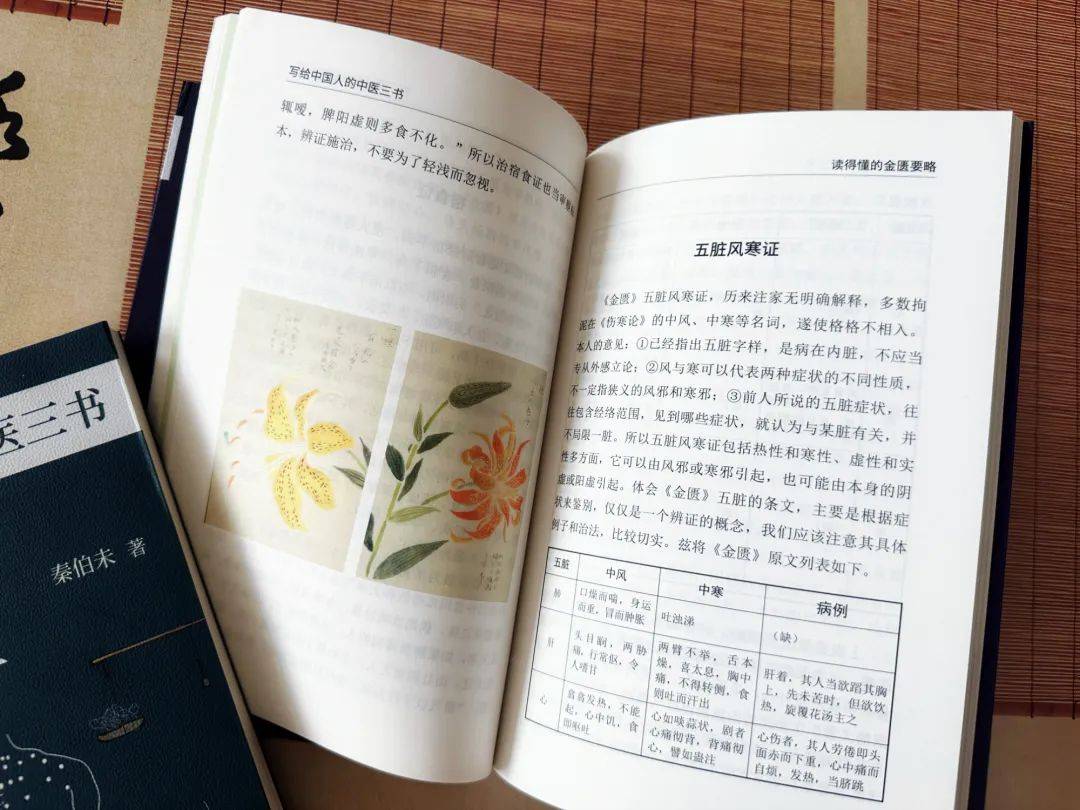 写给中国人的中医三书
辄嗳，脾阳虚则多食不化。”所以治宿食证也当审察
本，辨证施治，不要为了轻浅而忽视。
读得懂的金匮要略
五脏风寒证
《金匮》五脏风寒证，历来注家无明确解释，多数拘
泥在《伤寒论》的中风、中寒等名词，遂使格格不相入。
本人的意见：①已经指出五脏字样，是病在内脏，不应当
专从外感立论；②风与寒可以代表两种症状的不同性质，
不一定指狭义的风邪和寒邪；③前人所说的五脏症状，往
往包含经络范围，见到哪些症状，就认为与某脏有关，并
不局限一脏。所以五脏风寒证包括热性和寒性、虚性和实
性多方面，它可以由风邪或寒邪引起，也可能由本身的阴
虚或阳虚引起。体会《金匮》五脏的条文，主要是根据症
状来鉴别，仅仅是一个辨证的概念，我们应该注意其具体
例子和治法，比较切实。兹将《金匮》原文列表如下。
五脏 中风 中寒 病例
肺 口燥而喘，身运而重，冒而肿胀 吐浊涕 （缺）
肝 头目瞤，两胁痛，行常伛，令人嗜甘 两臂不举，舌本燥，喜太息，胸中痛，不得转侧，食则吐而汗出 肝着，其人当欲蹈其胸上，先未苦时，但欲饮热，旋覆花汤主之
心 翕翕发热，不能起，心中饥，食即呕吐 心如啖蒜状，剧者心痛彻背，背痛彻心，譬如蛊注 心伤者，其人劳倦即头面赤而下重，心中痛而自烦，发热，当脐跳
医三书
秦伯未 著